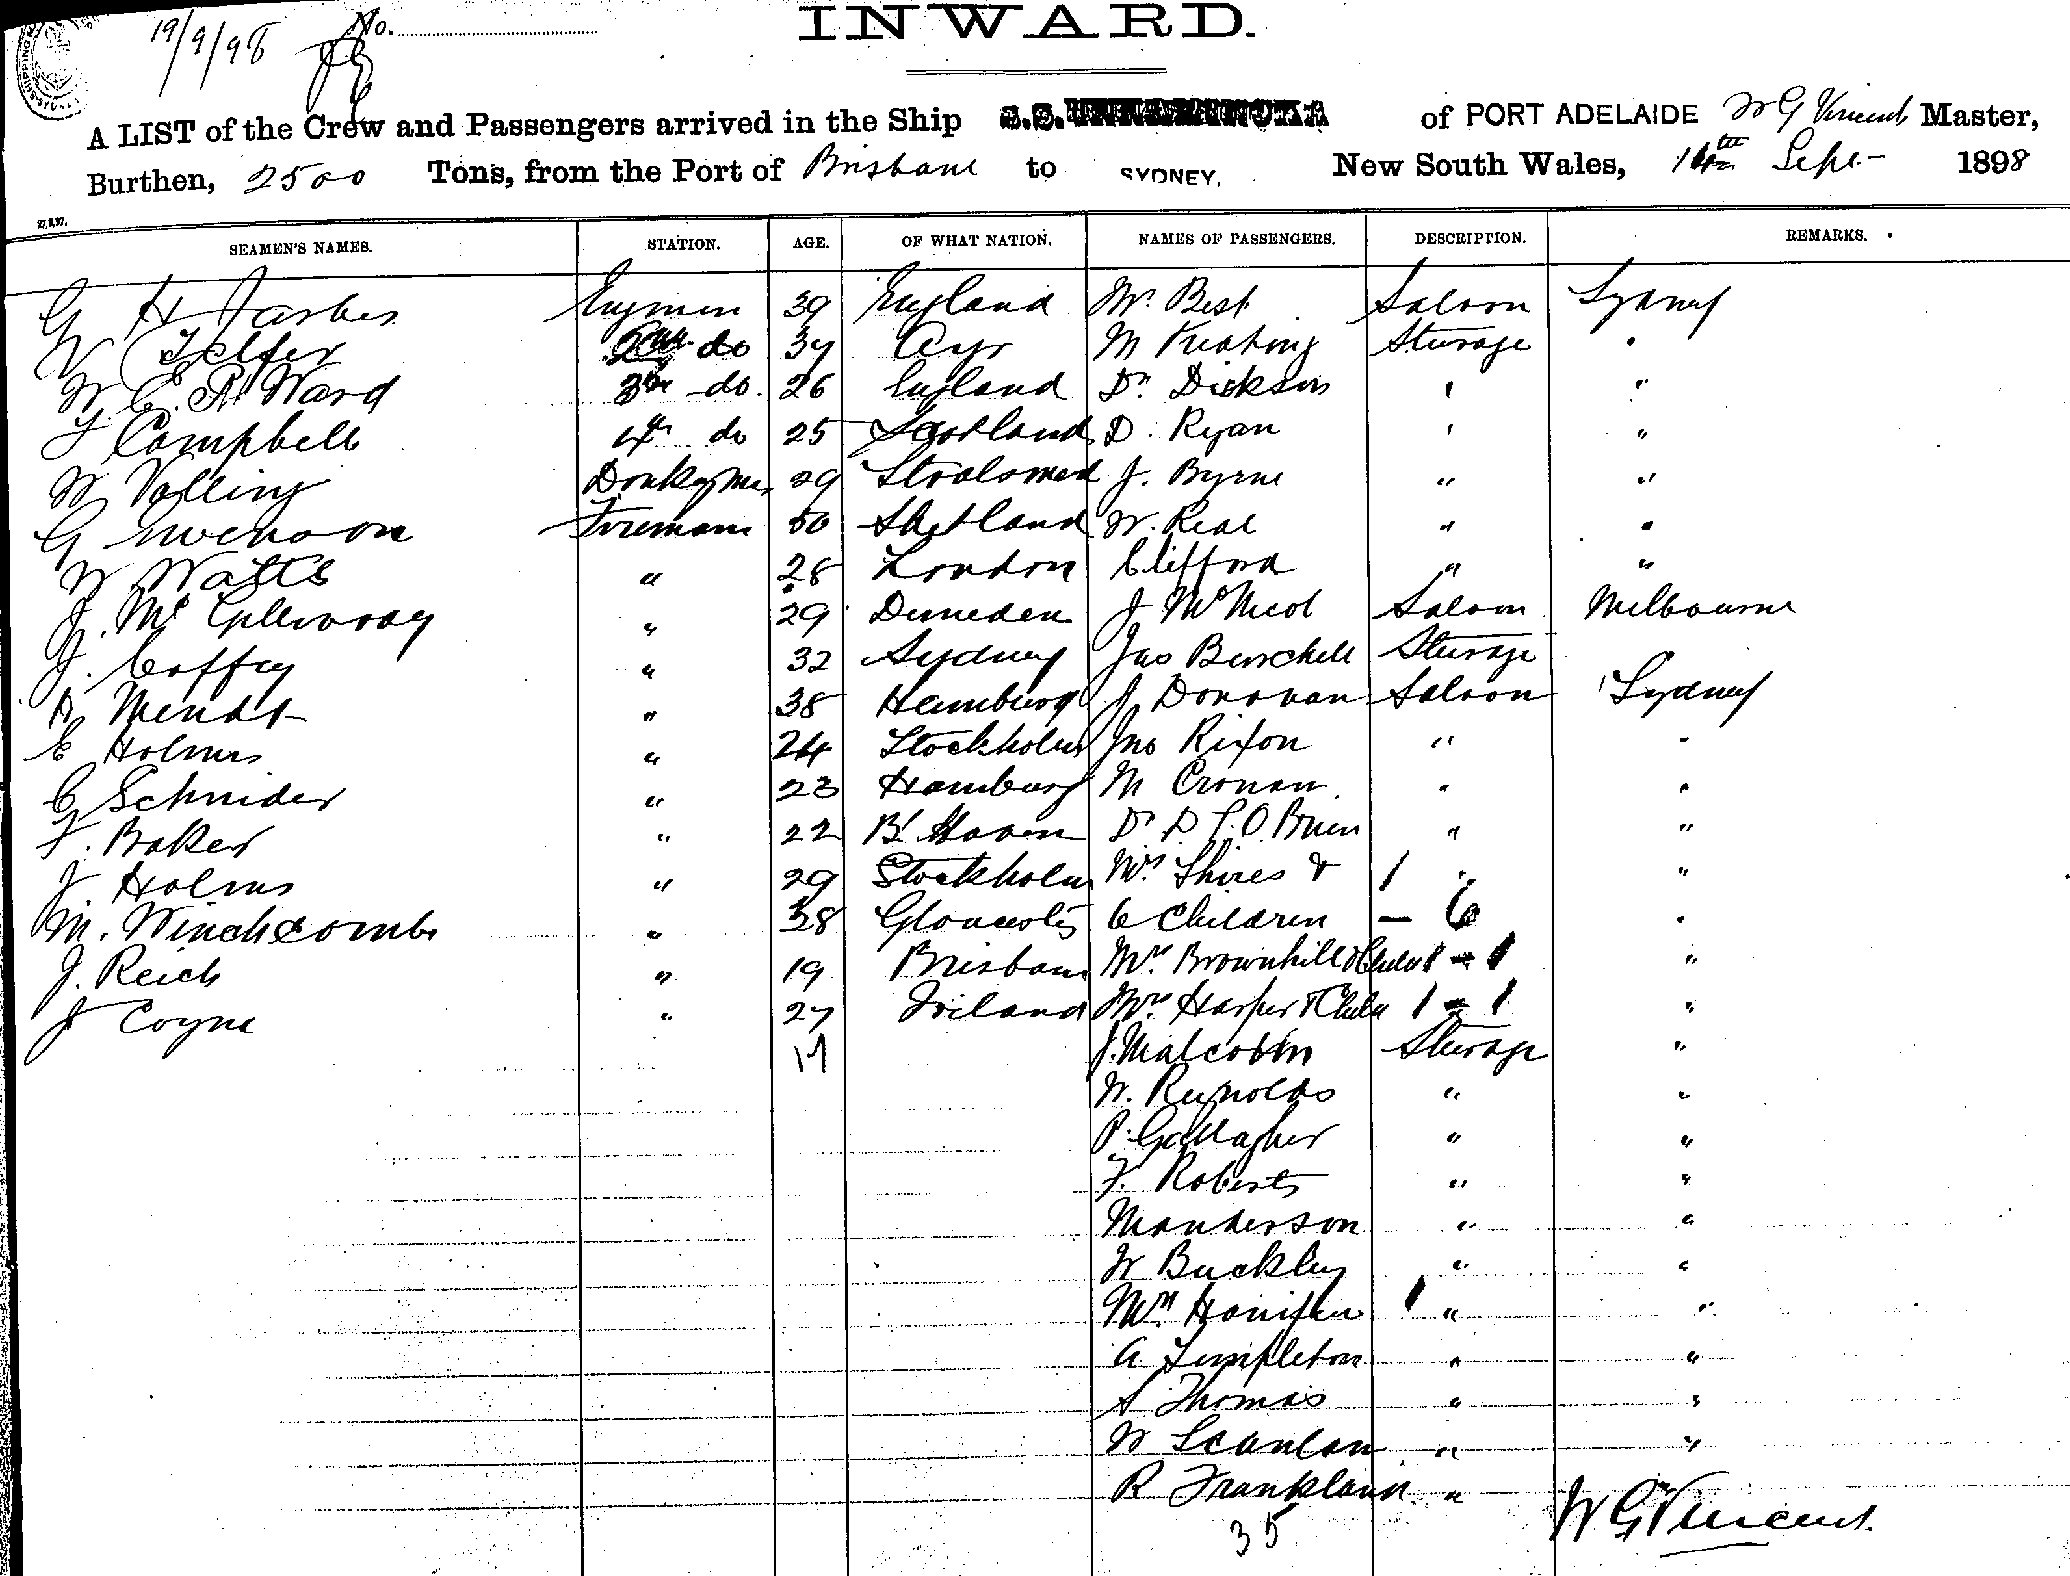 19/9/98 No.
INWARD.
A LIST of the Crew and Passengers arrived in the Ship S.S. of PORT ADELAIDE W G Vincent Master,
Burthen, 2500 Tons, from the Port of Brisbane to SYDNEY, New South Wales, Sept 1898
SEAMEN'S NAMES. STATION. AGE. OF WHAT NATION. NAMES OF PASSENGERS. DESCRIPTION. REMARKS.
G H 39 England Mr Best Saloon Sydney
W Telfer 2nd do 37 Ayr M Keating Sturage "
W. E. R. Ward 3rd do. 26 England Dr Dickson " "
F Campbell 4th do 25 Scotland D. Ryan " "
W 29 J. Byrne " "
G Fireman 50 Shetland W. Real " "
W Watts " 28 London Clifford " "
J. Mc " 29 Duneden J McNicol Saloon Melbourne
J. Coffey " 32 Sydney Jas Burchell Sturage
Mendt " 38 Hamburg J Donovan Saloon Sydney
C Holmes " 24 Stockholm Jno Rixon " "
C Schnider " 23 Hamburg M Cronan " "
F. Baker " 22 Dr O.Brien " "
J Holms " 29 Stockholm Mrs Shires & 1 " "
M. Winchcombe " 38 Gloucester 6 Children - 6 "
J. Reich " 19 Brisbane Mrs Brownhill & Child 1 - 1 "
J Coyne " 27 Ireland Mrs Harper & Child 1 - 1 "
17 J. Malcolm Sturage "
W. Reynolds " "
P. Gallagher " "
F. Roberts " "
Manderson " "
W Buckley " "
Mrs Hanifen 1 " "
A Templeton " "
S Thomas " "
W Scanlan " "
R Frankland "
35 W G Vincent.